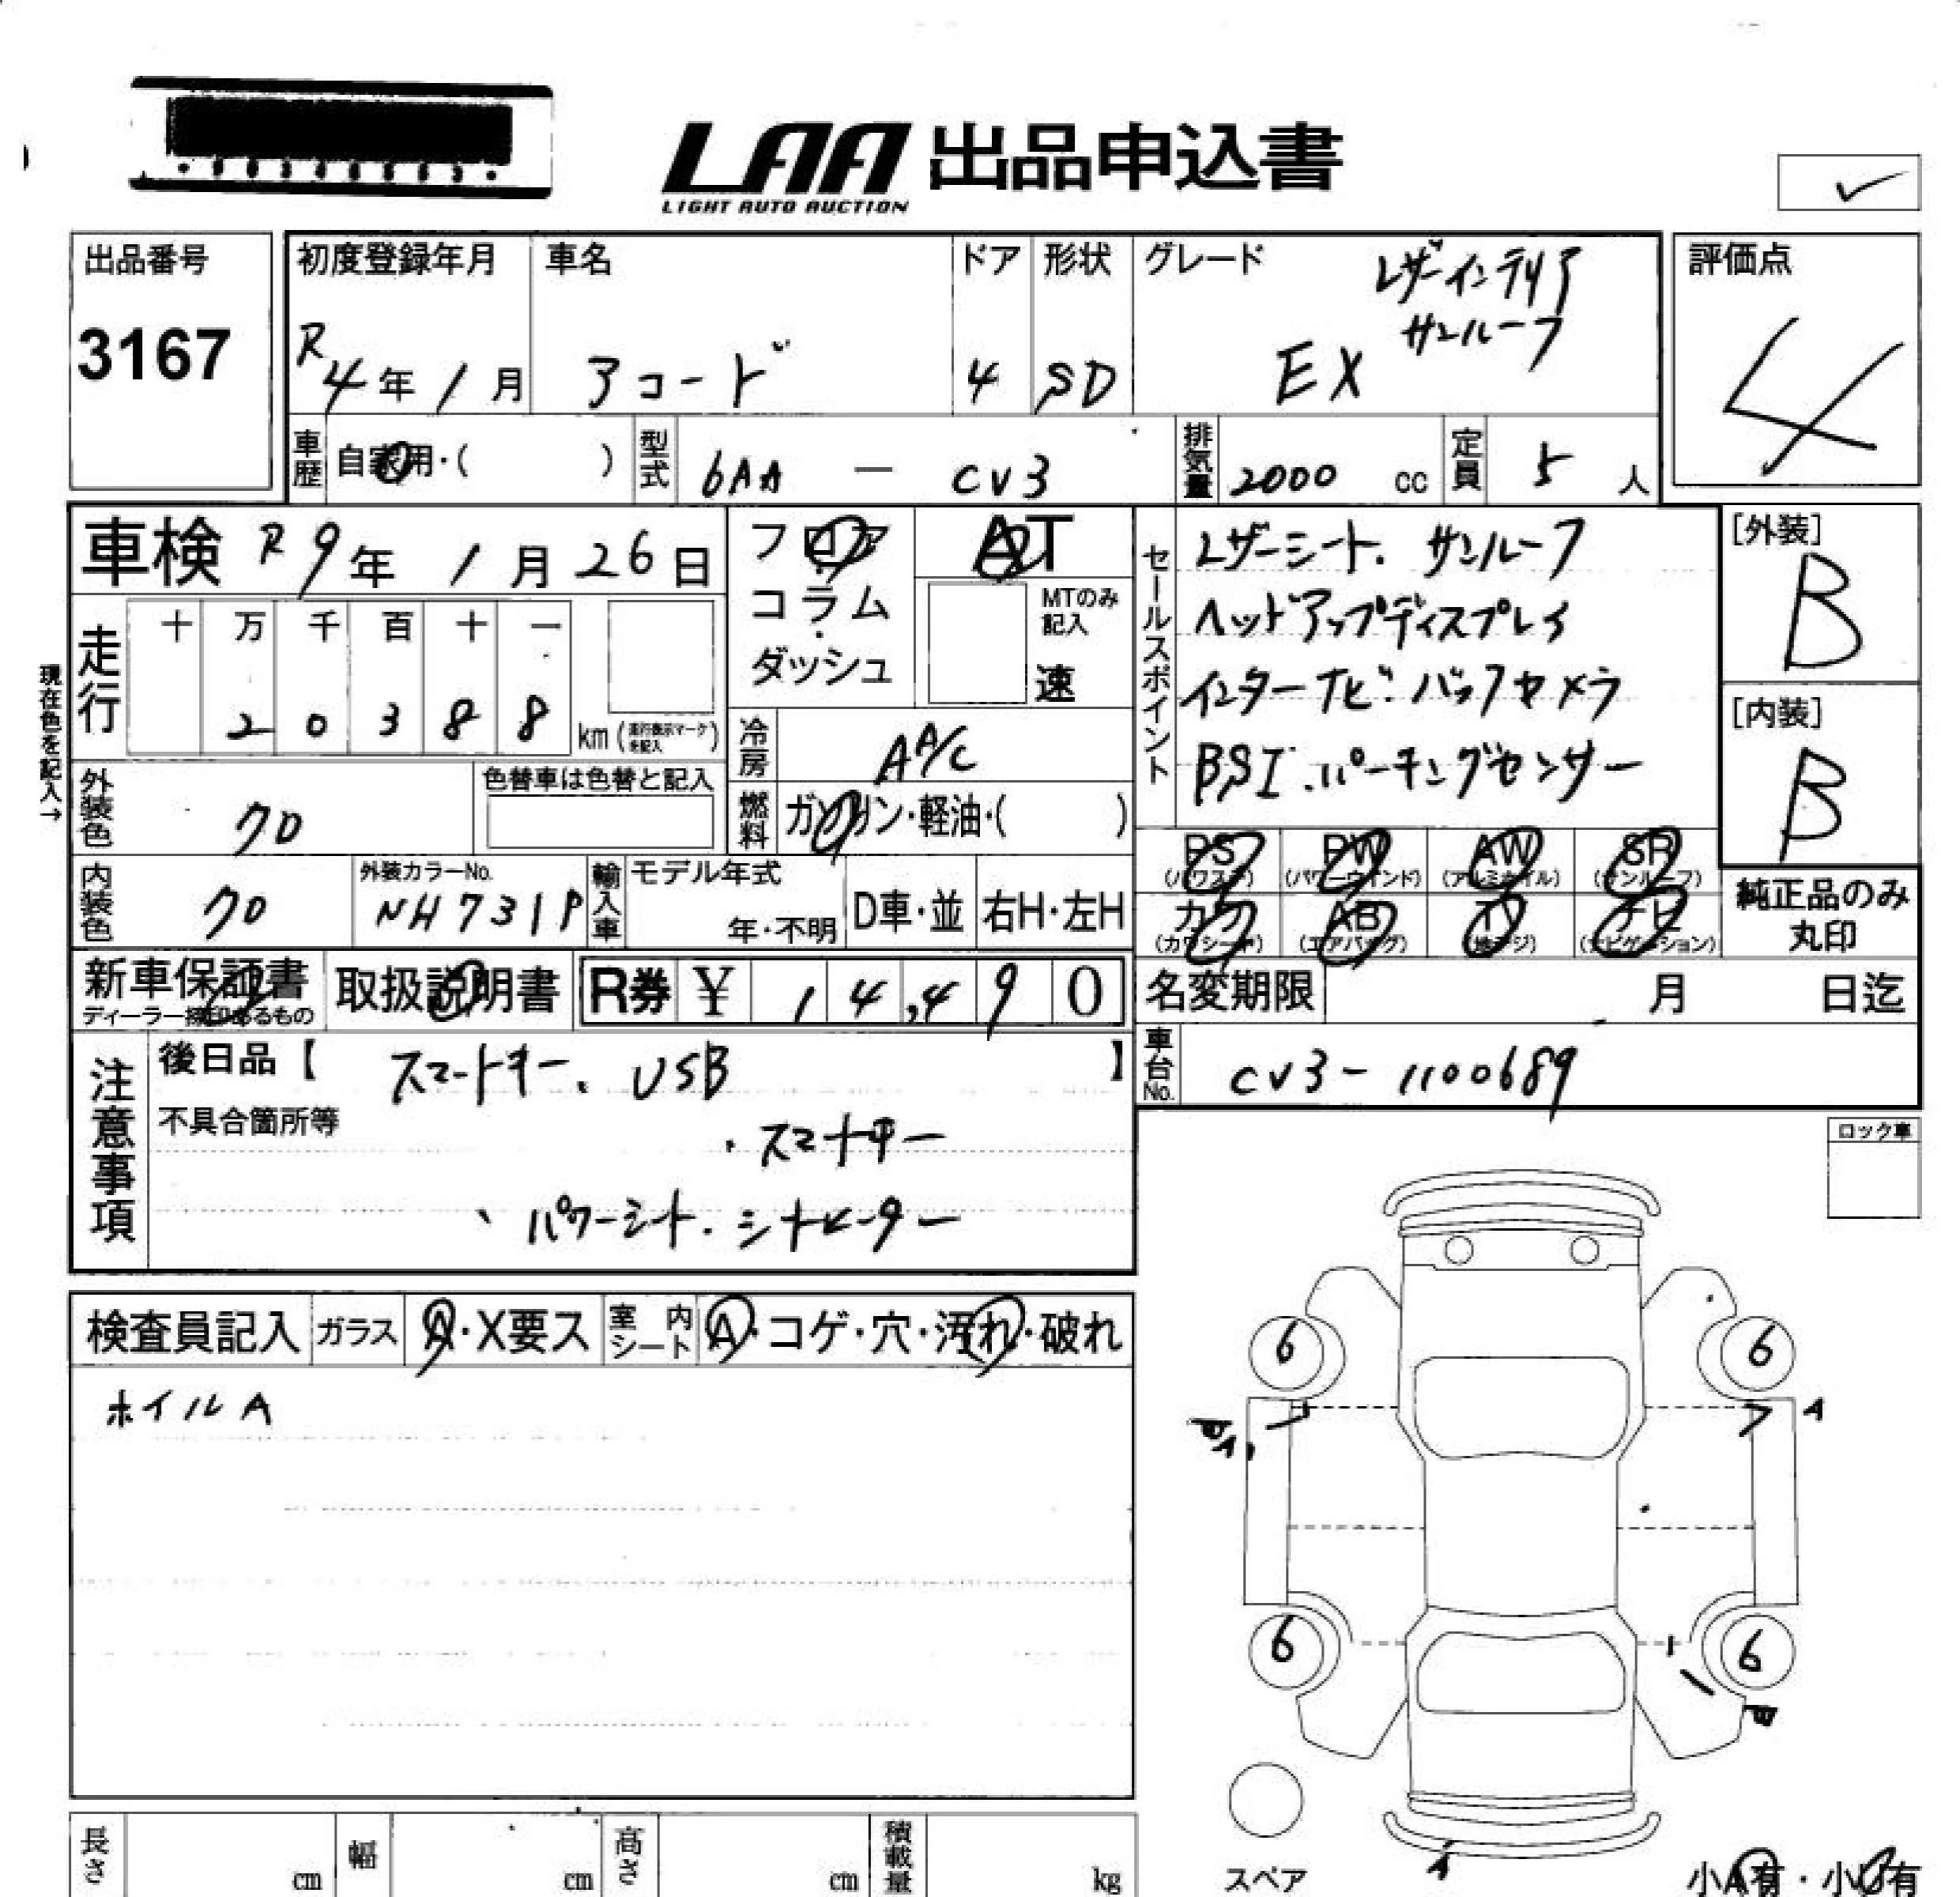 LAA 出品申込書
LIGHT AUTO AUCTION
出品番号
3167
初度登録年月
R4年1月
車名
アコード
ドア
4
形状
SD
グレード
レザーインテリア
サンルーフ
EX
評価点
4
車歴
自家用・( )
型式
6AA － CV3
排気量
2000 cc
定員
5 人
車検 R9年 1月 26日
フロア
コラム
・
ダッシュ
AT
MTのみ
記入
速
セールスポイント
レザーシート. サンルーフ
ヘッドアップディスプレイ
インターナビ. バックカメラ
BSI. パーキングセンサー
[外装]
B
[内装]
B
現在色を記入→
走行
十 万 千 百 十 一
2 0 3 8 8
km (走行表示マークを記入)
冷房
AA/C
外装色
クロ
色替車は色替と記入
燃料
ガソリン・軽油・( )
PS
(パワステ)
PW
(パワーウインド)
AW
(アルミホイル)
SR
(サンルーフ)
カワ
(カワシート)
AB
(エアバッグ)
TV
(地デジ)
ナビ
(ナビゲーション)
純正品のみ
丸印
内装色
クロ
外装カラーNo.
NH731P
輸入車
モデル年式
年・不明
D車・並
右H・左H
新車保証書
ディーラー捺印あるもの
取扱説明書
R券 ¥ 1 4,4 9 0
名変期限
月 日迄
車台No.
CV3-1100689
注意事項
後日品【 スマートキー. USB 】
不具合箇所等
・スマートキー
、パワーシート. シートヒーター
ロック車
検査員記入
ガラス
A・X要ス
室内シート
A・コゲ・穴・汚れ・破れ
ホイルA
6
6
A
6
6
スペア
小A有・小U有
長さ
cm
幅
cm
高さ
cm
積載量
kg